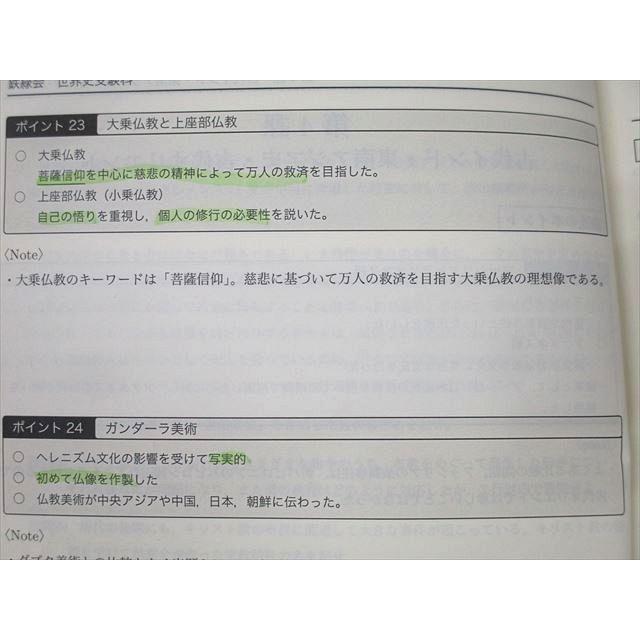 鉄緑会 世界史受験科
ポイント 23 大乗仏教と上座部仏教
○ 大乗仏教
菩薩信仰を中心に慈悲の精神によって万人の救済を目指した。
○ 上座部仏教（小乗仏教）
自己の悟りを重視し，個人の修行の必要性を説いた。
〈Note〉
・大乗仏教のキーワードは「菩薩信仰」。慈悲に基づいて万人の救済を目指す大乗仏教の理想像である。
ポイント 24 ガンダーラ美術
○ ヘレニズム文化の影響を受けて写実的
○ 初めて仏像を作製した
○ 仏教美術が中央アジアや中国，日本，朝鮮に伝わった。
〈Note〉